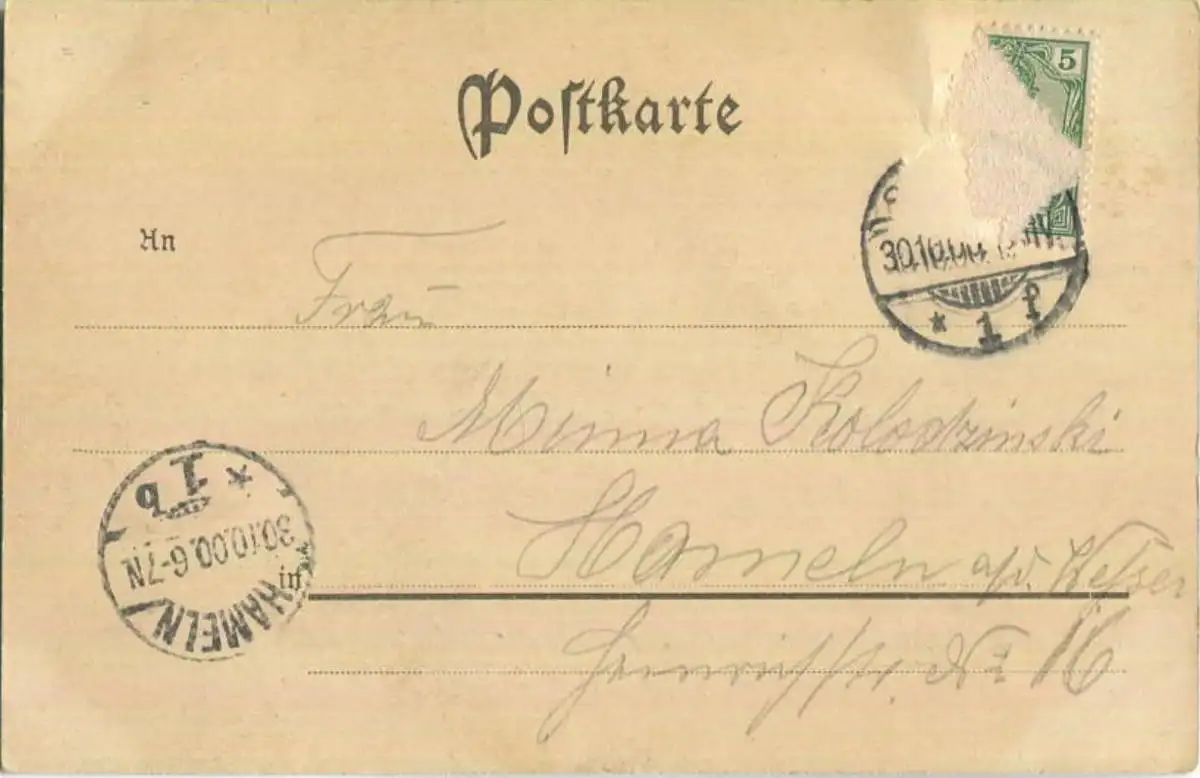 Postkarte
5
An
30.10.00
* 1 f
Frau
Minna Kolodzinski
* 1 b
30.10.00. 6-7N
HAMELN
in
Hameln a/d. Weser
Heinrichstr. No 16